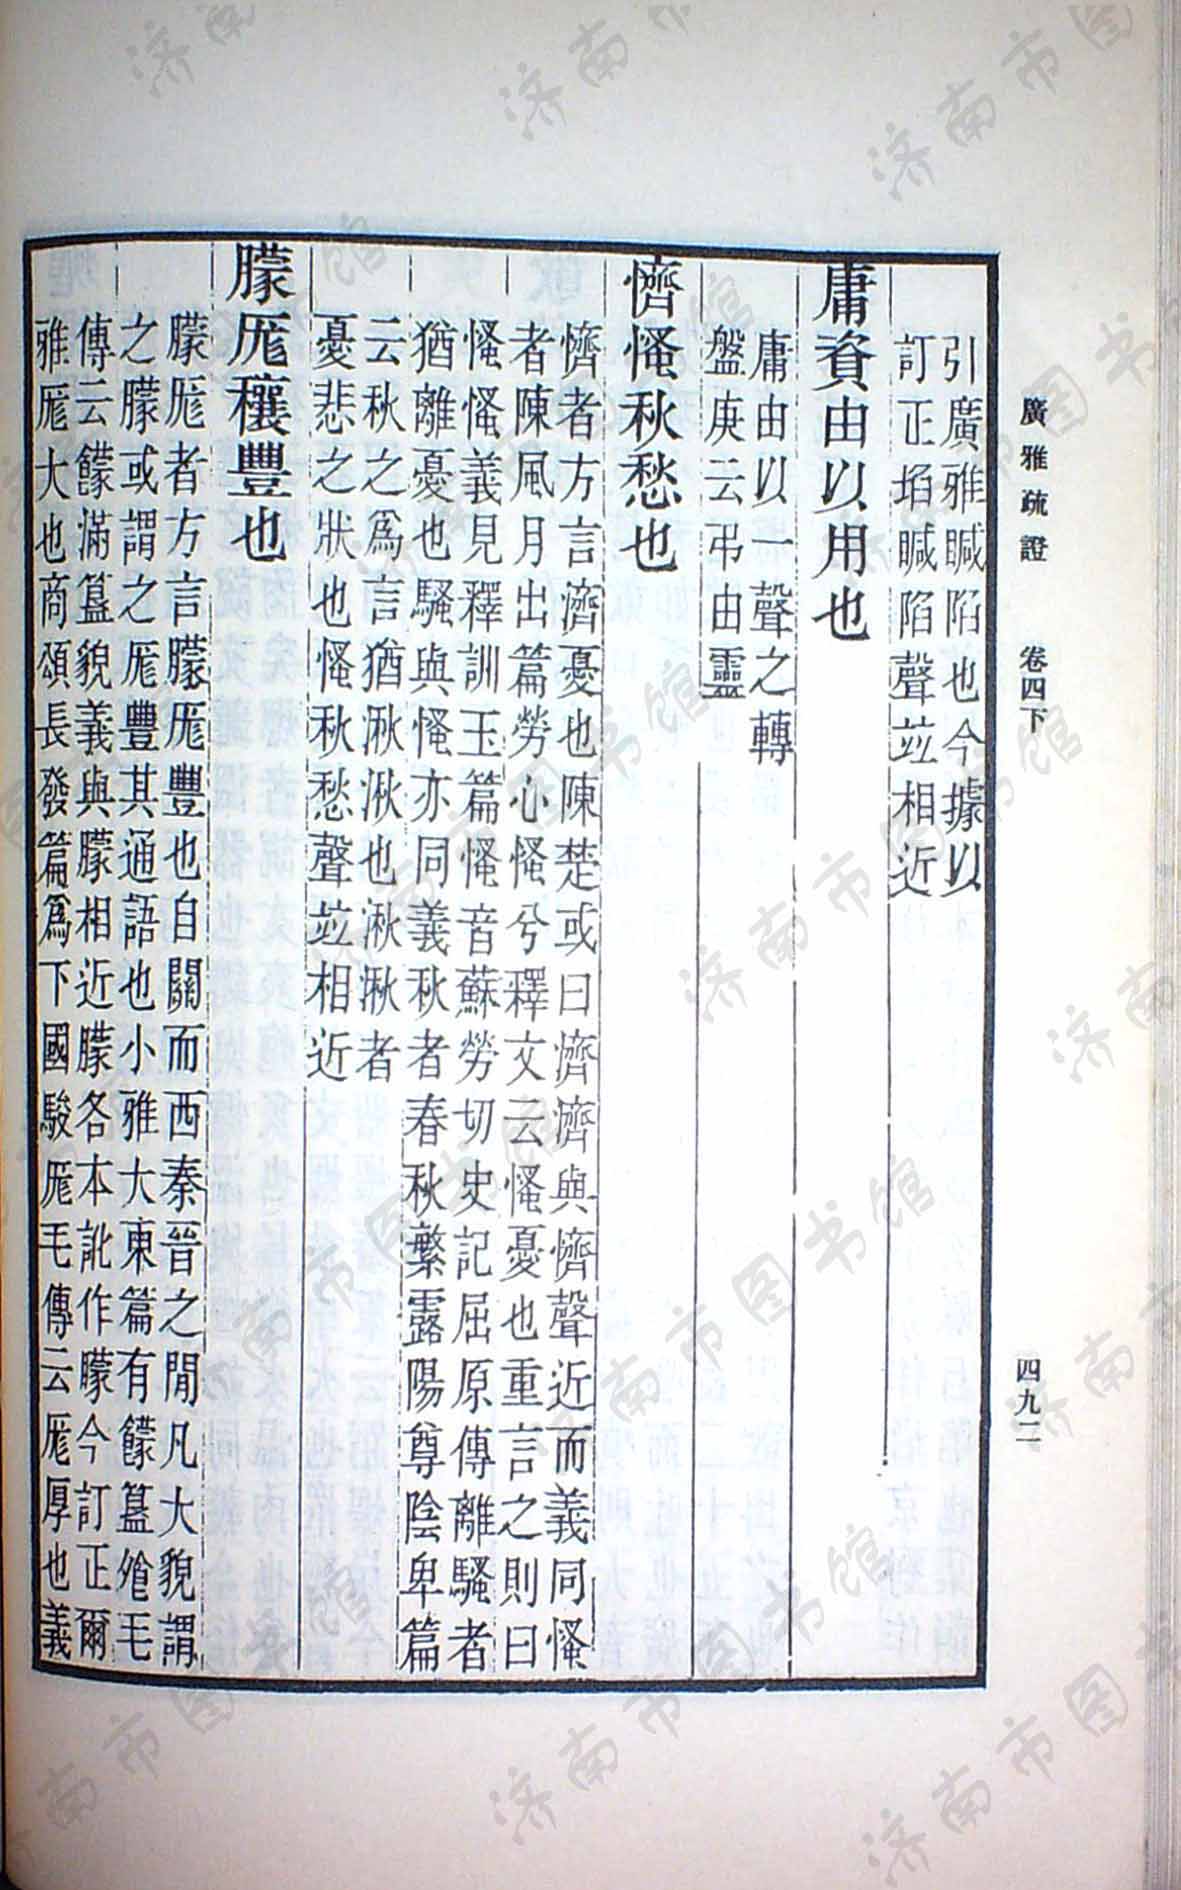 廣雅疏證　卷四下　四九二
引廣雅瞴陷也今據以
訂正埳瞴陷聲竝相近
庸資由以用也
庸由以一聲之轉
盤庚云弔由靈
懠慅秋愁也
懠者方言濟憂也陳楚或曰濟濟與懠聲近而義同慅
者陳風月出篇勞心慅兮釋文云慅憂也重言之則曰
慅慅義見釋訓玉篇慅音蘇勞切史記屈原傳離騷者
猶離憂也騷與慅亦同義秋者春秋繁露陽尊陰卑篇
云秋之爲言猶湫湫也湫湫者
憂悲之狀也慅秋愁聲竝相近
朦厖穰豐也
朦厖者方言朦厖豐也自關而西秦晉之閒凡大貌謂
之朦或謂之厖豐其通語也小雅大東篇有饛簋飧毛
傳云饛滿簋貌義與朦相近朦各本訛作矇今訂正爾
雅厖大也商頌長發篇爲下國駿厖毛傳云厖厚也義
济南市图书馆